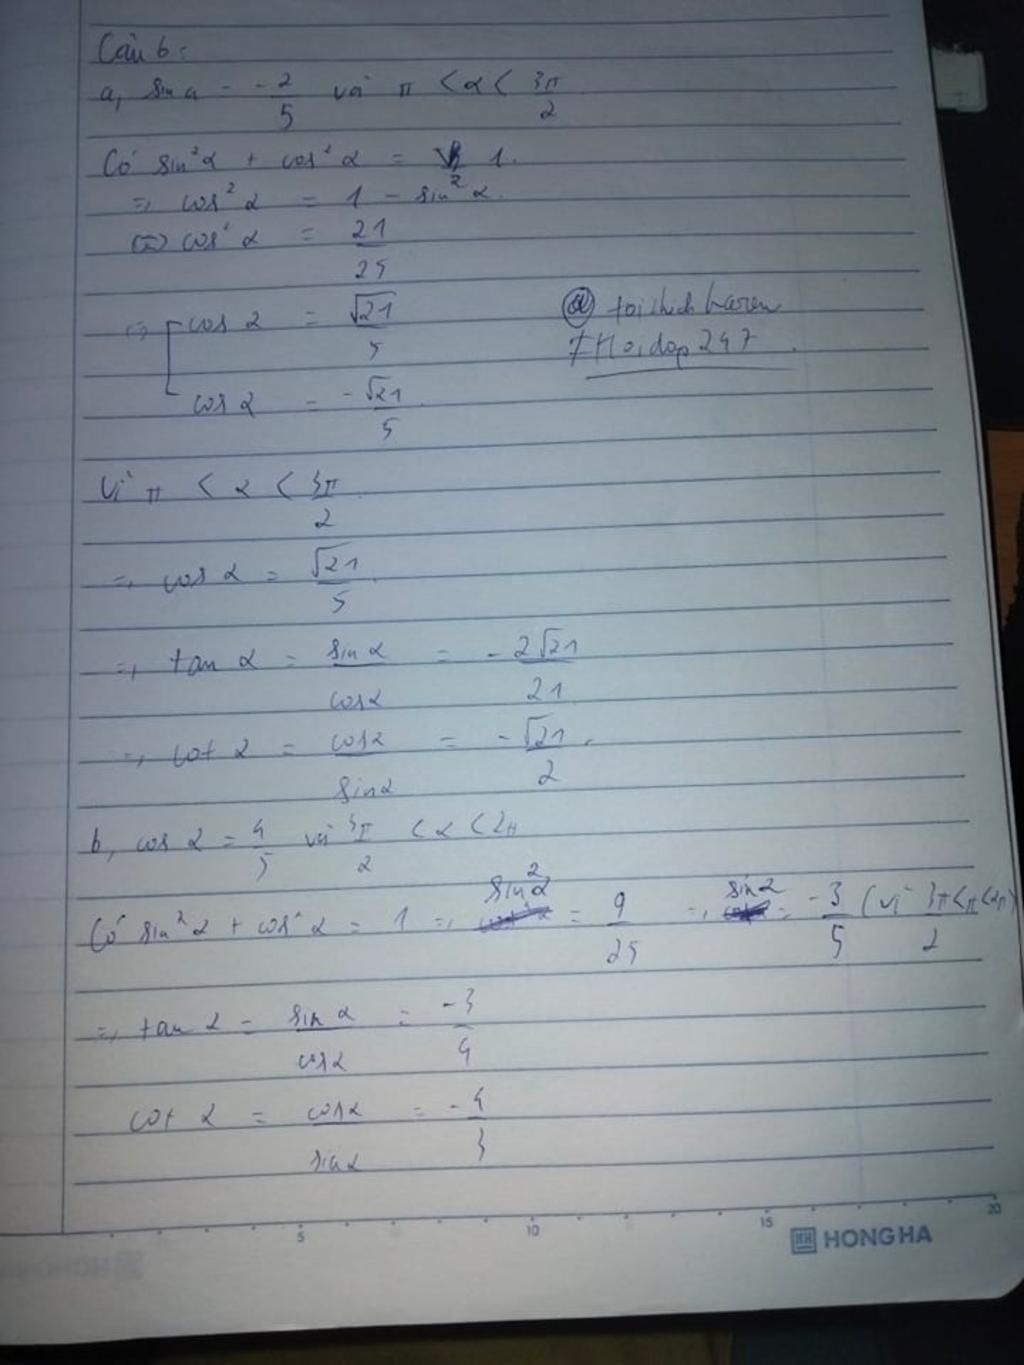 Câu 6:
a, sin α = -2/5 và π < α < 3π/2
Có sin²α + cos²α = 1.
=> cos²α = 1 - sin²α.
<=> cos²α = 21/25
=> [ cos α = √21/5
@ toithichharem
cos α = -√21/5
#Hoidap247
Vì π < α < 3π/2
=> cos α = √21/5
=> tan α = sin α/cos α = -2√21/21
=> cot α = cos α/sin α = -√21/2.
b, cos α = 4/5 và 3π/2 < α < 2π
Có sin²α + cos²α = 1 => sin²α = 9/25 => sin α = -3/5 (vì 3π/2 < π < 2π)
=> tan α = sin α/cos α = -3/4
cot α = cos α/sin α = -4/3
5 10 15 20
HH HONG HA